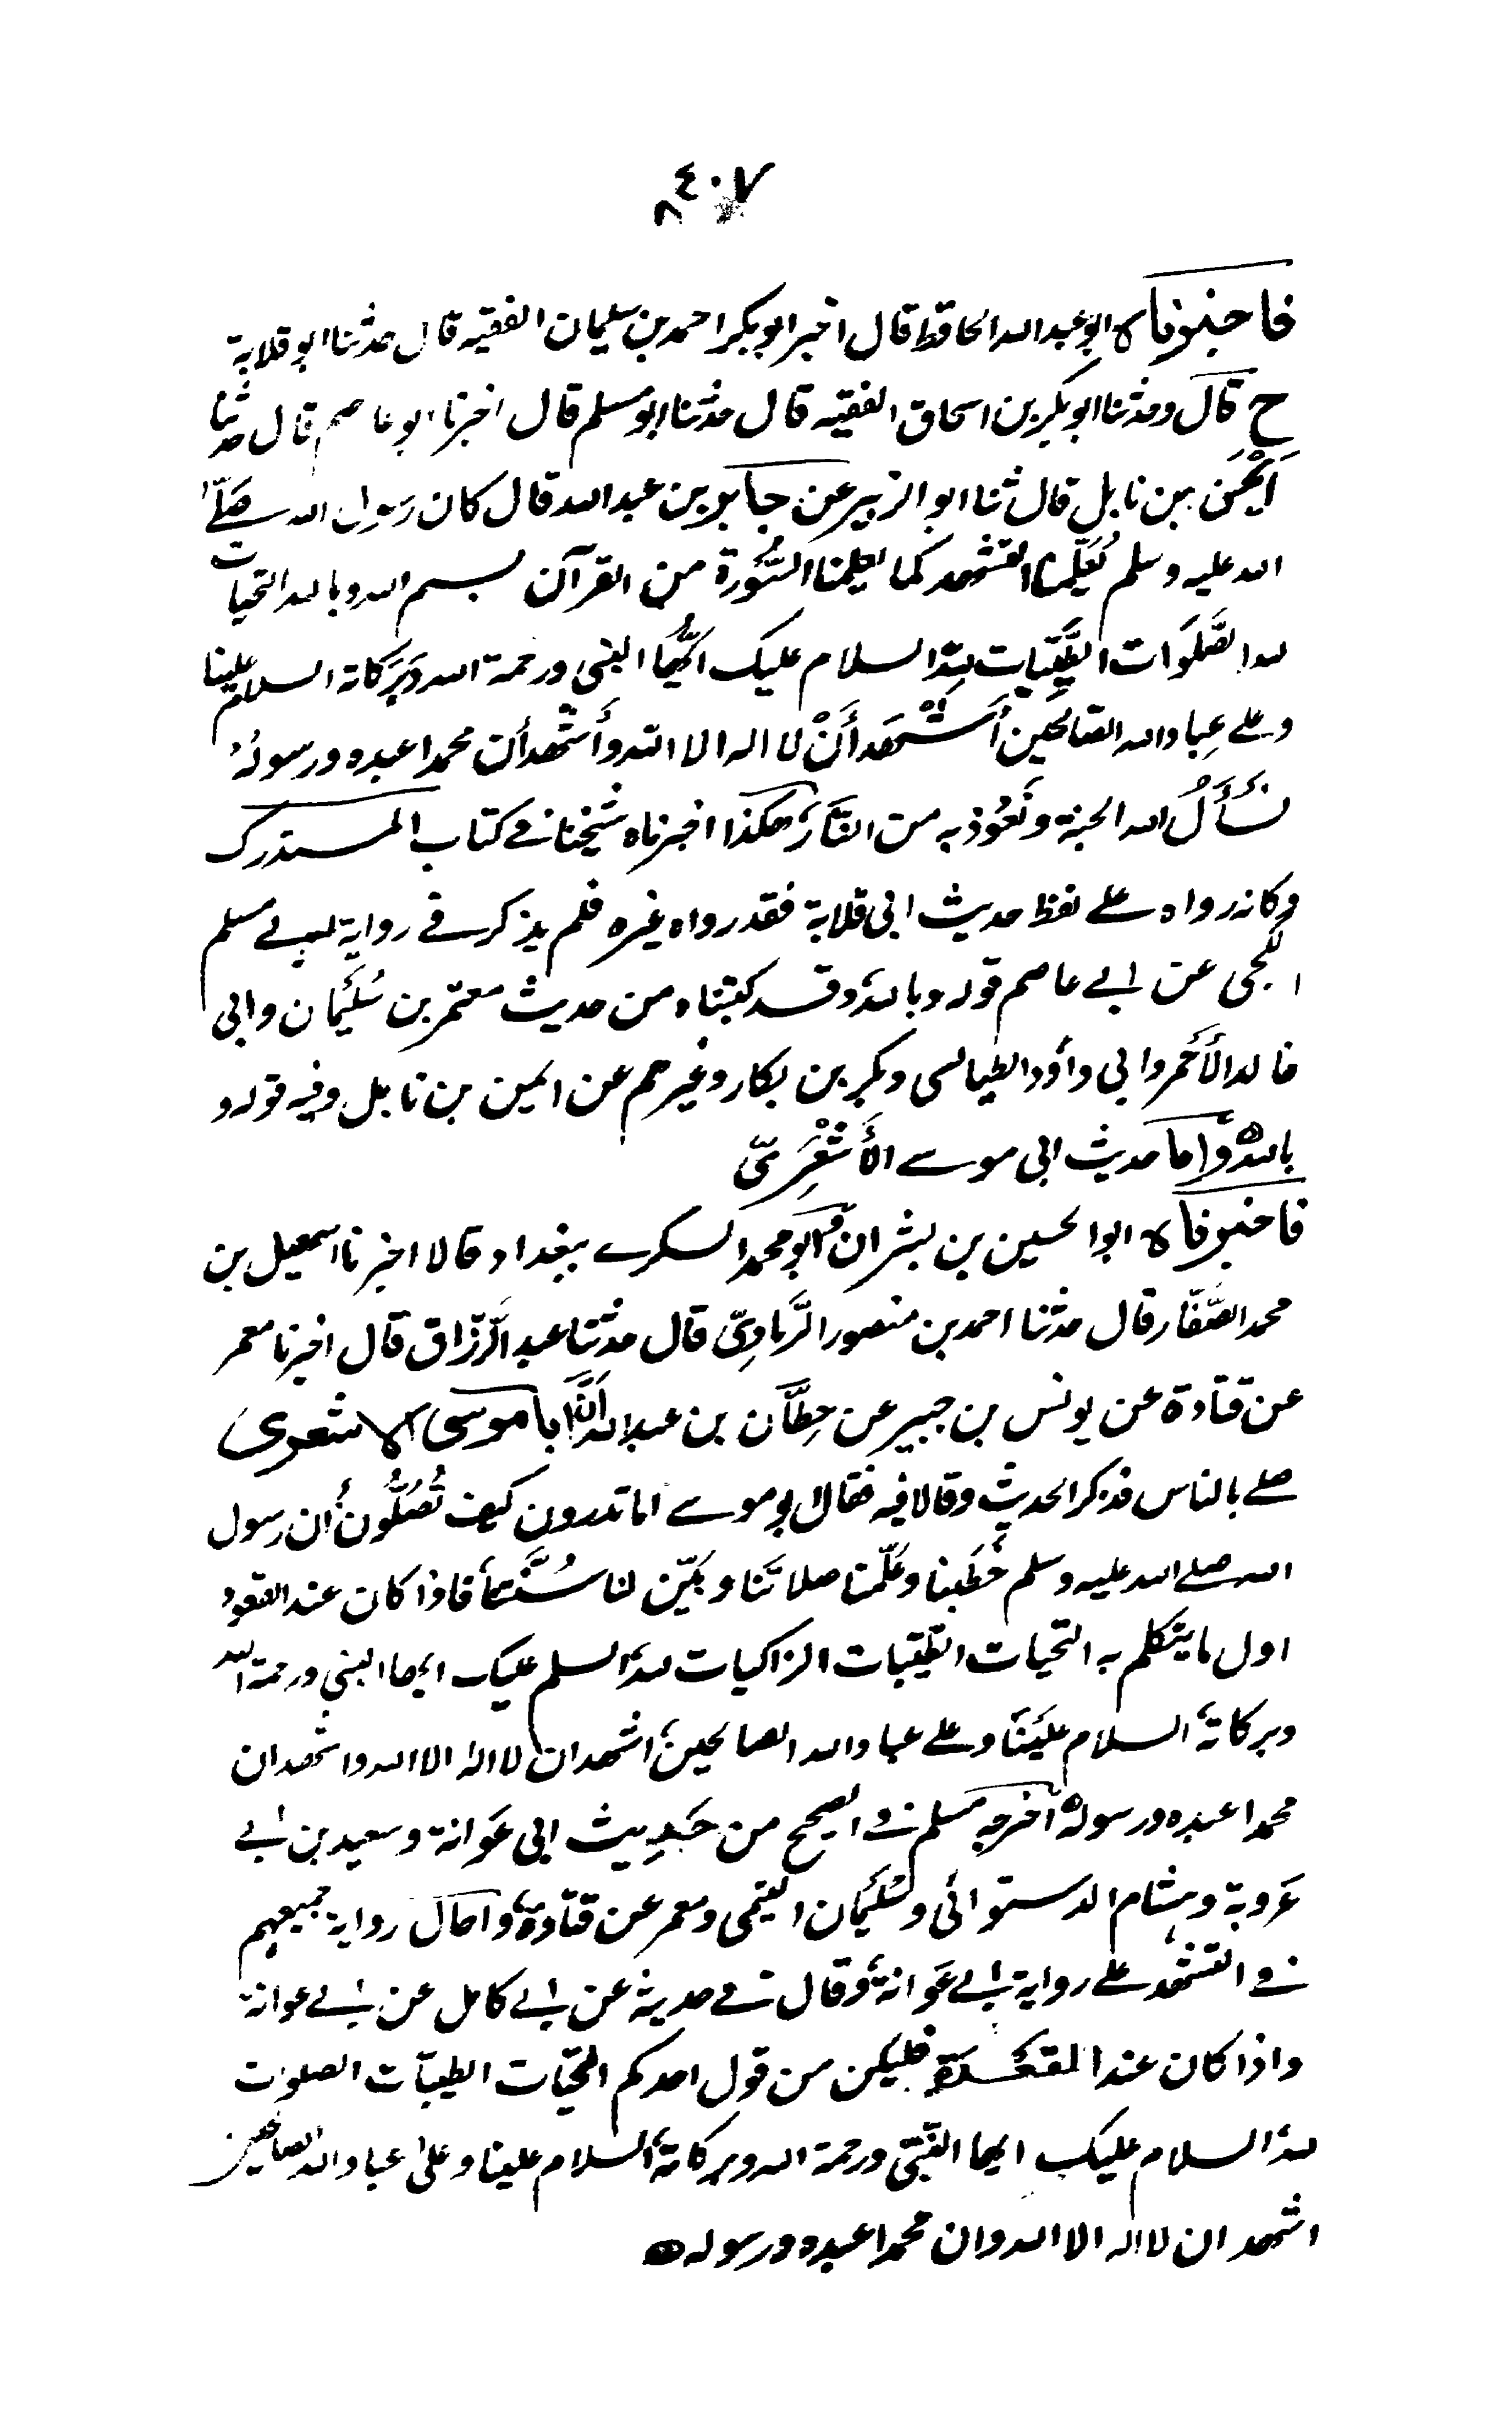 ٤٠٧
٨
فاخبرناه ابو عبدالله الحافظ قال اخبر ابو بكر احمد بن سليمان الفقيه قال حدثنا ابو قلابة
ح قال وحدثنا ابو بكر بن اسحاق الفقيه قال حدثنا ابو مسلم قال اخبرنا ابو عاصم قال حدثنا
أيْمَن بن نابل قال ثنا ابو الزبير عن جابر بن عبد الله قال كان رَسُول الله صَلّے
الله عليه وسلم يُعَلِّمنا التشهد كما يعلمنا السُّورة من القرآن بسم الله وبالله التحيات
لله الصَّلَوَات الطَّيِّبات لله السلام عليك أَيُّها النبى ورحمة الله وَبَرَكاته السلام علينا
وعلے عِباد الله الصَّالحِين أشْهَد أَنْ لا اله الا الله وأَشْهد أن محمدا عبده ورسولهُ
نَسْأَلُ الله الجنة ونَعُوذ به من النَّار هكذا اخبرناه شيخنا فے كتاب المستدرك
وكانه رواه علے لفظ حديث ابى قلابة فقد رواه غيره فلم يذكر فے رواية ابے مسلم
الكجى عن ابے عاصم قوله وبالله وقد كتبناه من حديث معتمر بن سُلَيْمان وابى
خالد الأَحْمر وابى داؤد الطيالسى وبكر بن بكار وغيرهم عن ايمن بن نابل وفيه قوله و
بالله وأما حديث ابى موسے الأَشْعَرِىّ
فاخبرناه ابو الحسين بن بشران وابو محمد السكرے ببغداد قالا اخبرنا اسمعيل بن
محمد الصَّفَّار قال حدثنا احمد بن منصور الرَّمادِىّ قال حدثنا عبد الرَّزّاق قال اخبرنا معمر
عن قتادة عن يونس بن جبير عن حِطَّان بن عبد الله أنَّ ابا موسى الاشعرى
صلے بالناس فذكر الحديث وقالا فيه فقال ابو موسے اما تدرون كيف تُصَلُّون أن رسول
الله صلے الله عليه وسلم خَطَبنا وعَلّمنا صلاتَنا وبَيّن لنا سُنَّتنا فاذا كان عند القعود
اول ما يتكلم به التحيات الطَّيِّبات الزاكيات لله السلم عليك ايها النبى ورحمة الله
وبركاته السلام علَيْنا وعلے عباد الله الصالحين اشهد ان لا اله الا الله واشهد ان
محمدا عبده ورسوله أخرجه مسلم فے الصحيح من حَدِيث ابى عَوانة وسعيد بن ابے
عَروبة وهِشام الدستوائى وسُلَيْمان التيمى ومعمر عن قتادة وأحال رواية جميعهم
فے التشهد علے رواية ابے عَوانة وقال فے حديثه عن ابے كامل عن ابے عوانة
واذا كان عند المقعَدة فليكن من قول احدكم التحيّات الطيبّات الصلوٰت
لله السلام عليك ايها النَّبىّ ورحمة الله وبركاته السلام علينا وعلىٰ عباد الله الصالحين
اشهد ان لا اله الا الله وان محمدا عبده ورسوله